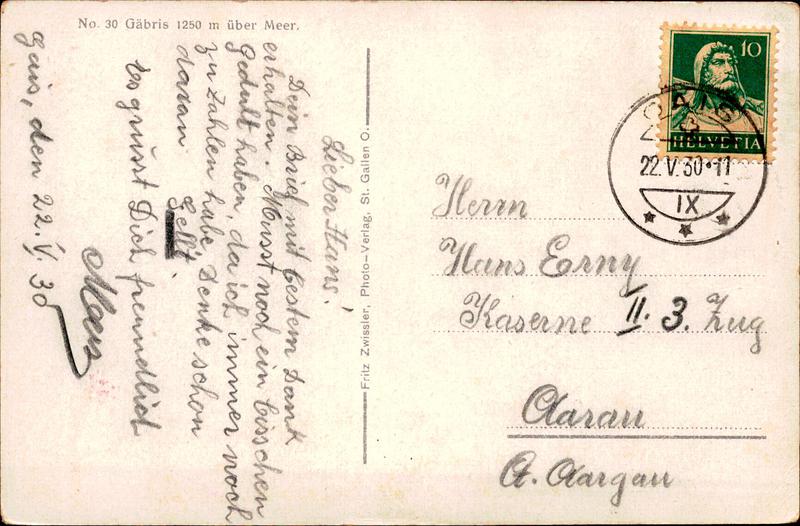 No. 30 Gäbris 1250 m über Meer.
Gais, den 22. V. 30
Lieber Hans!
Dein Brief mit bestem Dank
erhalten. Musst noch ein bisschen
Gedult haben, da ich immer noch
zu zahlen habe. Denke schon
daran Gell!
Es grüsst Dich freundlich
Fritz Zwissler, Photo-Verlag, St. Gallen O.
10
HELVETIA
GAIS
22.V.30·11
IX
Herrn
Hans Erny
Kaserne II. 3. Zug
Aarau
Kt. Aargau